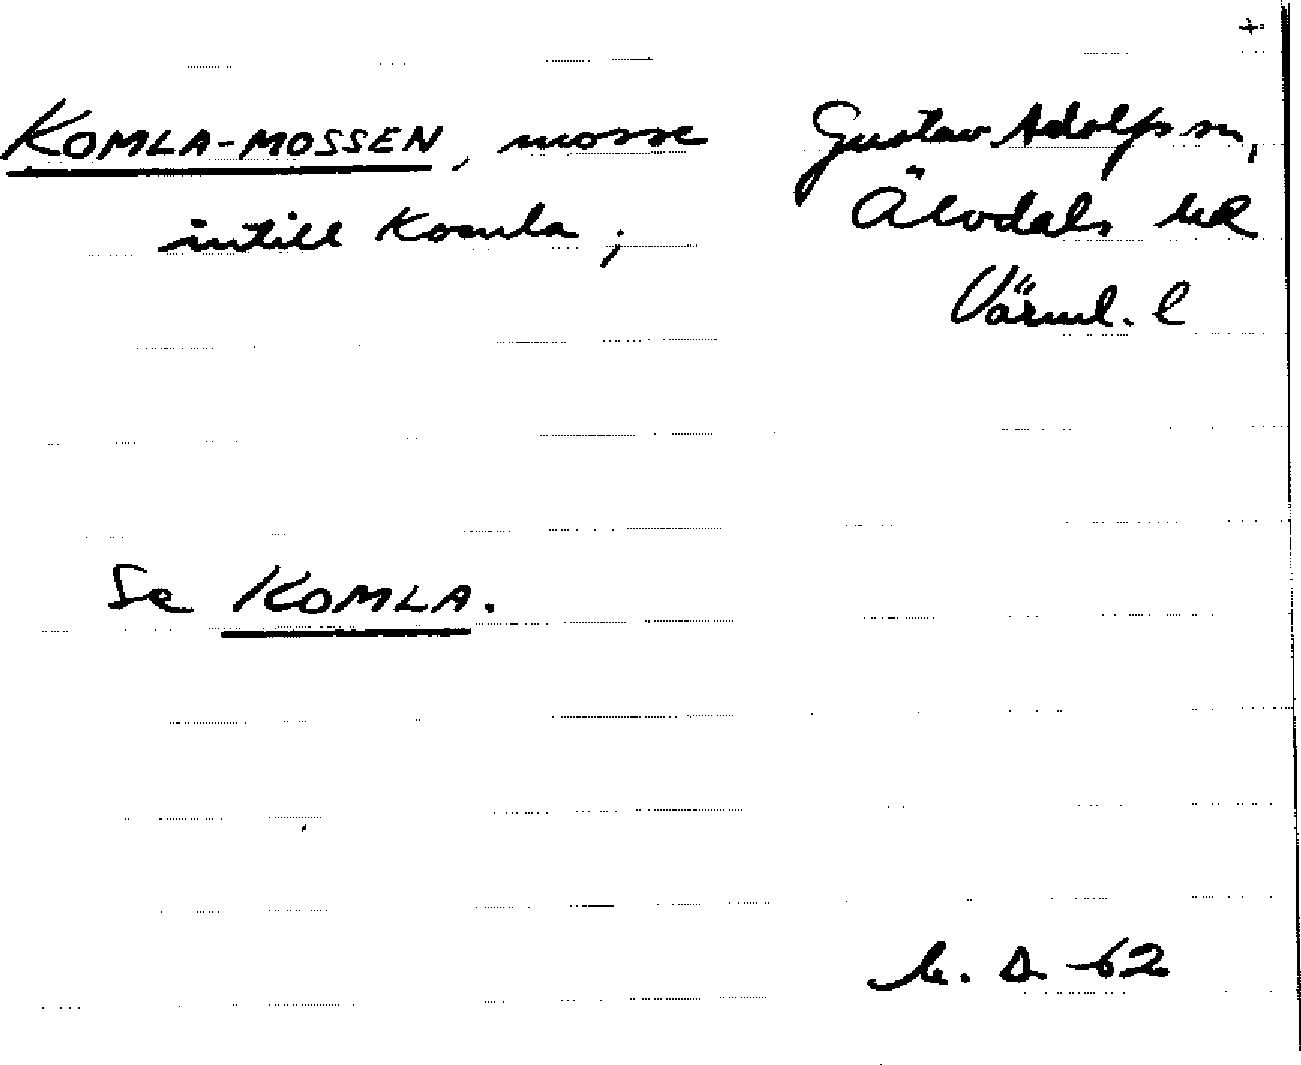 +
KOMLA-MOSSEN, mosse
intill Komla;
Gustav Adolfs sn,
Älvdals hd
Värml. l
Se KOMLA.
-62